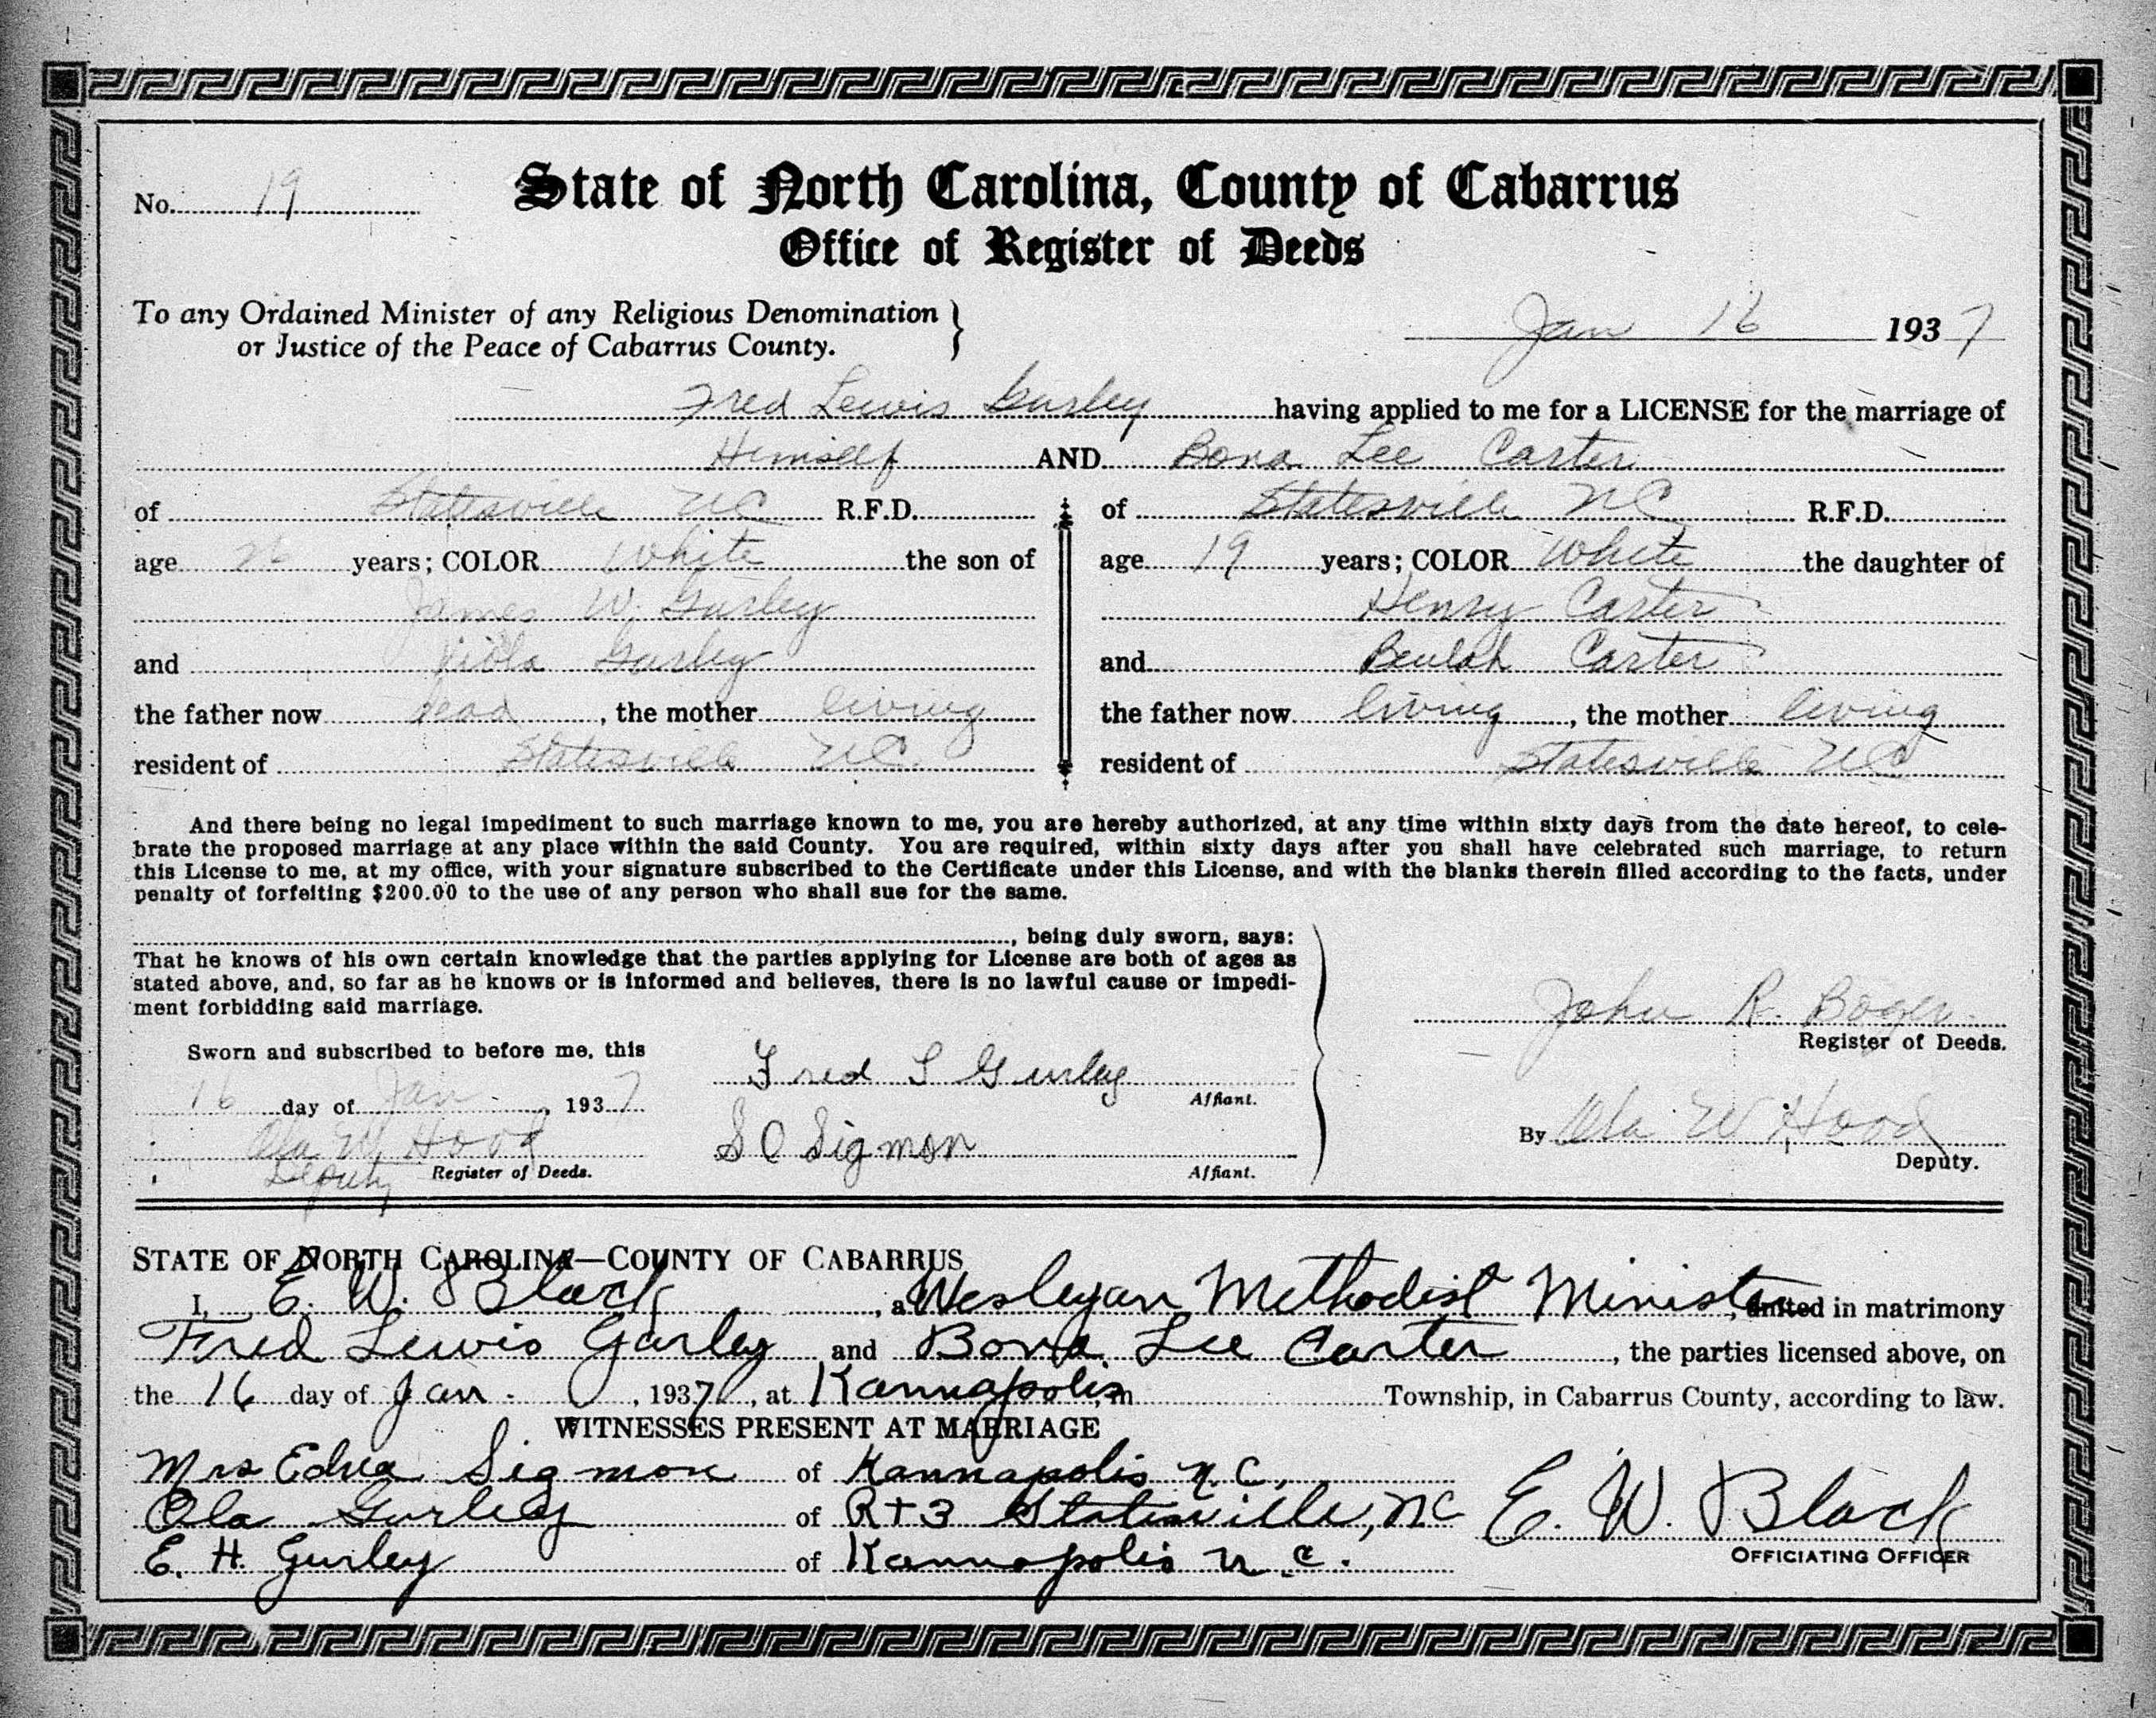 No. 19 State of North Carolina, County of Cabarrus
Office of Register of Deeds
To any Ordained Minister of any Religious Denomination
or Justice of the Peace of Cabarrus County.
Jan 16 1937
Fred Lewis Gurley having applied to me for a LICENSE for the marriage of
Himself AND Bona Lee Carter
of Statesville NC R.F.D.
age 26 years; COLOR White the son of
James W. Gurley
and Viola Gurley
the father now dead, the mother living
resident of Statesville NC
of Statesville NC R.F.D.
age 19 years; COLOR White the daughter of
Henry Carter
and Beulah Carter
the father now living, the mother living
resident of Statesville NC
And there being no legal impediment to such marriage known to me, you are hereby authorized, at any time within sixty days from the date hereof, to cele-
brate the proposed marriage at any place within the said County. You are required, within sixty days after you shall have celebrated such marriage, to return
this License to me, at my office, with your signature subscribed to the Certificate under this License, and with the blanks therein filled according to the facts, under
penalty of forfeiting $200.00 to the use of any person who shall sue for the same.
, being duly sworn, says:
That he knows of his own certain knowledge that the parties applying for License are both of ages as
stated above, and, so far as he knows or is informed and believes, there is no lawful cause or impedi-
ment forbidding said marriage.
Sworn and subscribed to before me, this
16 day of Jan, 1937
Ola W Hood
Deputy Register of Deeds.
Fred L Gurley
Affiant.
S C Sigmon
Affiant.
John R. Boger
Register of Deeds.
By Ola W Hood
Deputy.
STATE OF NORTH CAROLINA—COUNTY OF CABARRUS
I, E. W. Black, a Wesleyan Methodist Minister, united in matrimony
Fred Lewis Gurley and Bona Lee Carter, the parties licensed above, on
the 16 day of Jan., 1937, at Kannapolis, in Township, in Cabarrus County, according to law.
WITNESSES PRESENT AT MARRIAGE
Mrs Edna Sigmon of Kannapolis N.C.
Ola Gurley of Rt 3 Statesville, NC
E. H. Gurley of Kannapolis N.C.
E. W. Black
OFFICIATING OFFICER